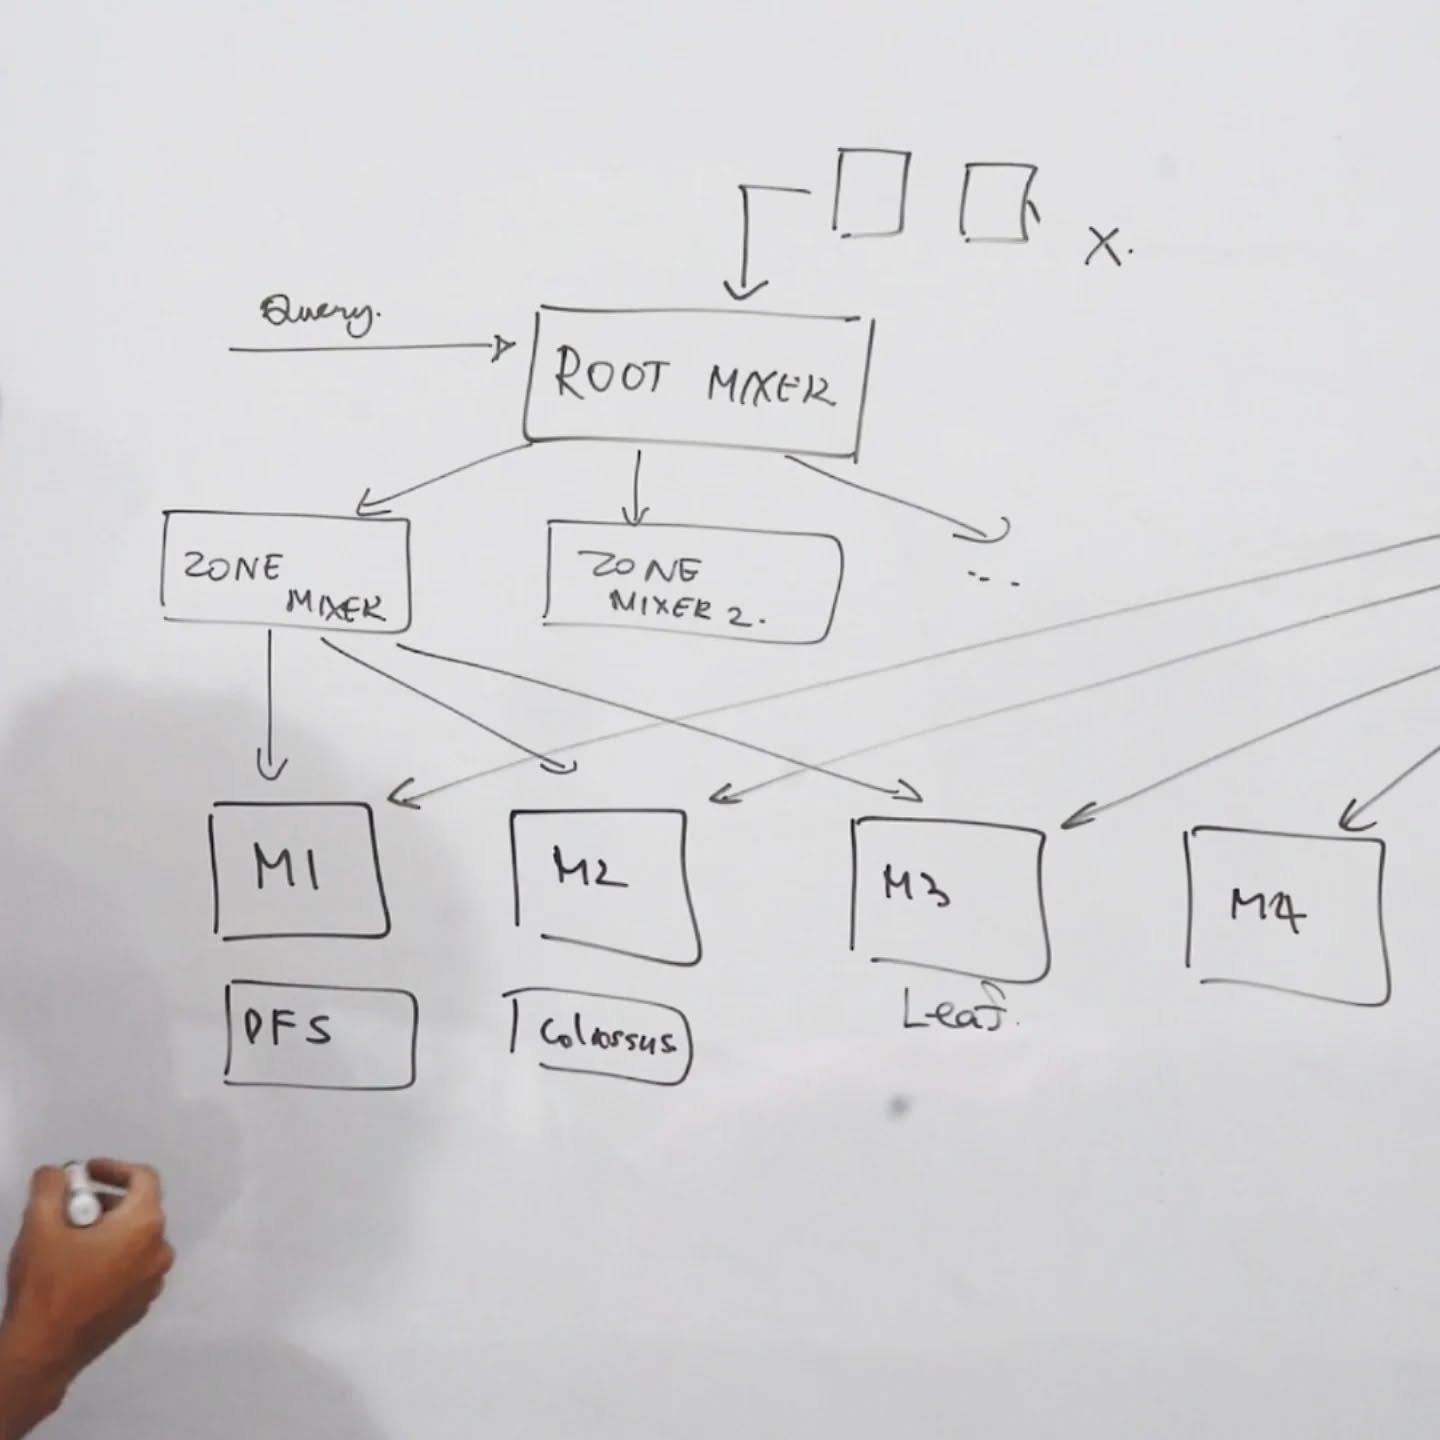 X.
Query.
ROOT MIXER
ZONE
MIXER
ZONE
MIXER 2.
...
M1
M2
M3
M4
Leaf.
DFS
Colossus